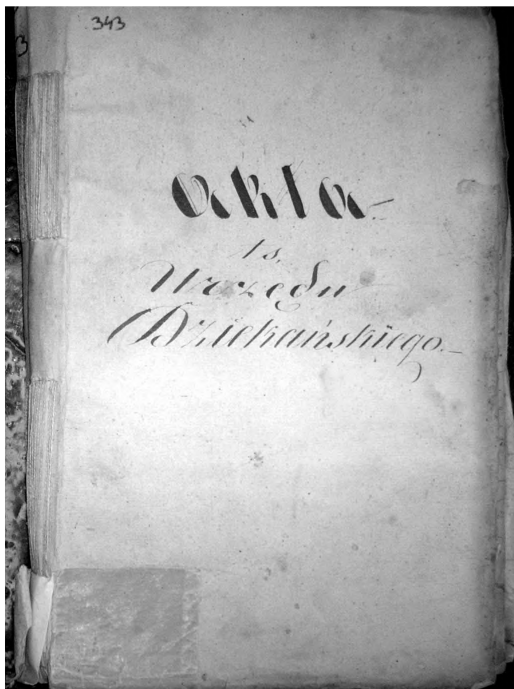 343
3
Akta
Urzędu
Dziekańskiego.